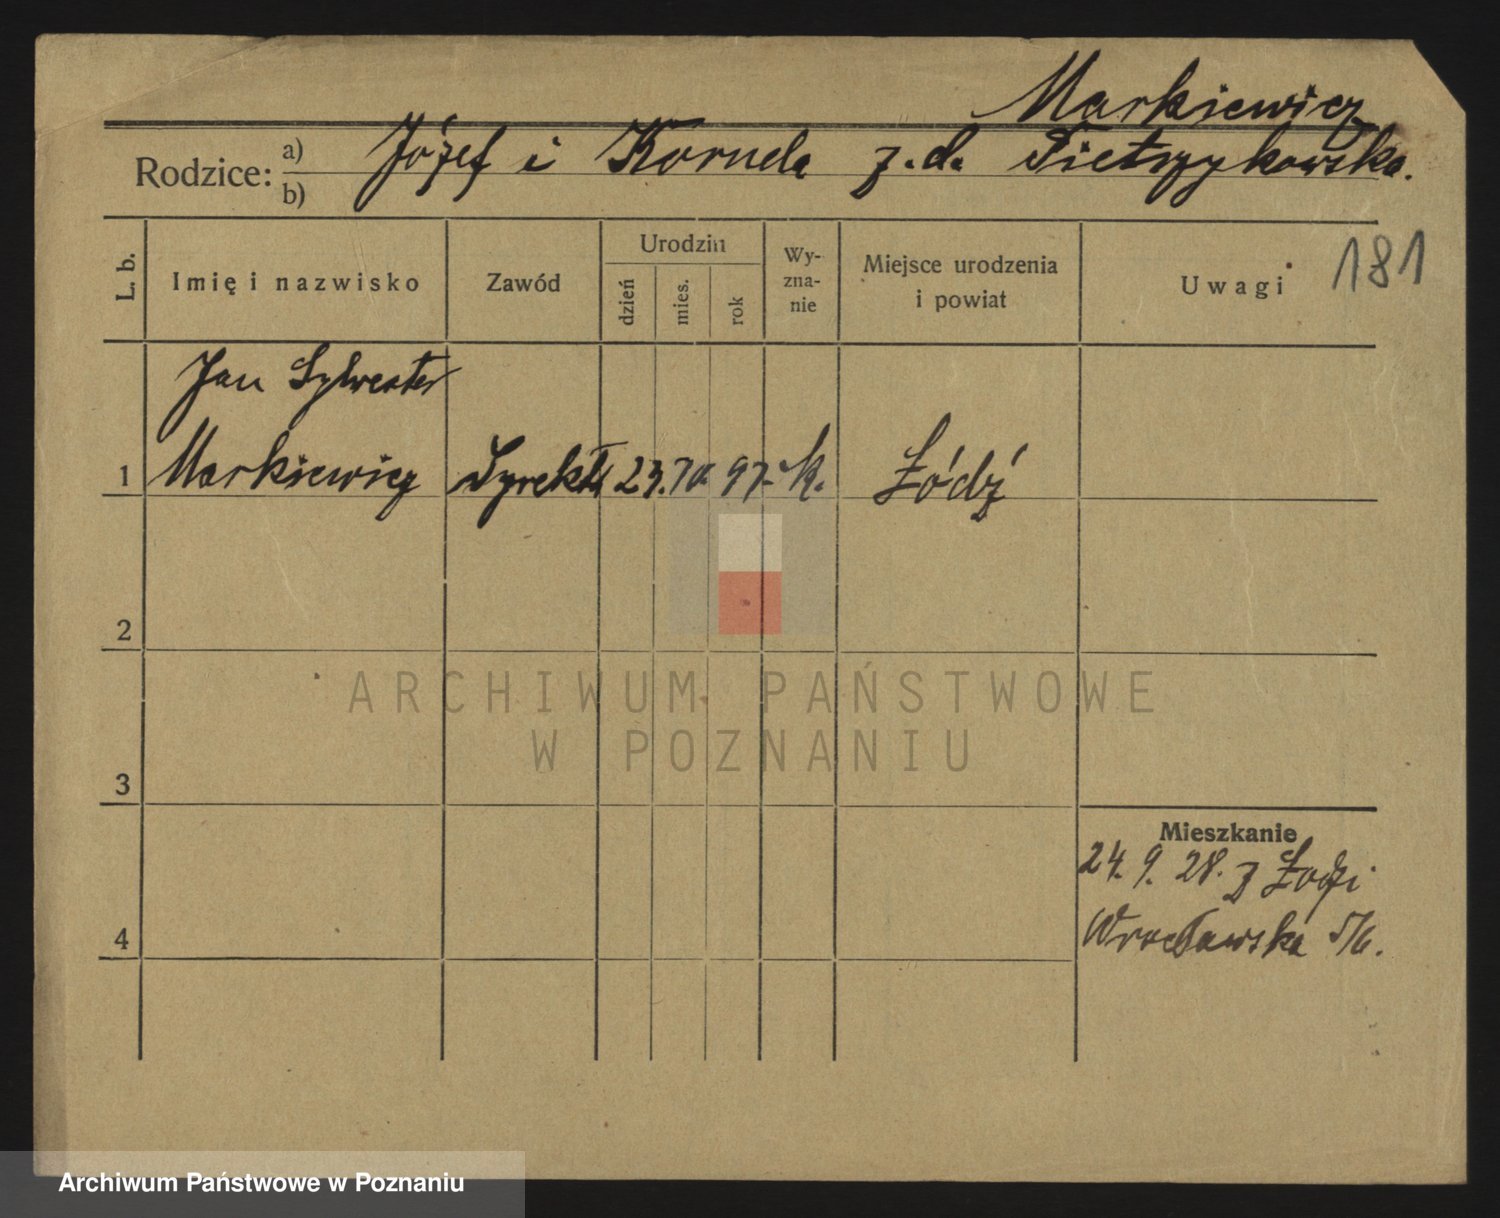 Markiewicz
Rodzice: a) b) Józef i Kornela z.d. Pietrzykowska.
L. b.
Imię i nazwisko
Zawód
Urodzin
dzień
mies.
rok
Wy-
zna-
nie
Miejsce urodzenia
i powiat
Uwagi
181
Jan Sylwester
1 Markiewicz Dyrekt. 23. 10. 97. K. Łódź
2
3
4
Mieszkanie
24. 9. 28. z Łodzi
Wrocławska
ARCHIWUM PAŃSTWOWE
W POZNANIU
Archiwum Państwowe w Poznaniu